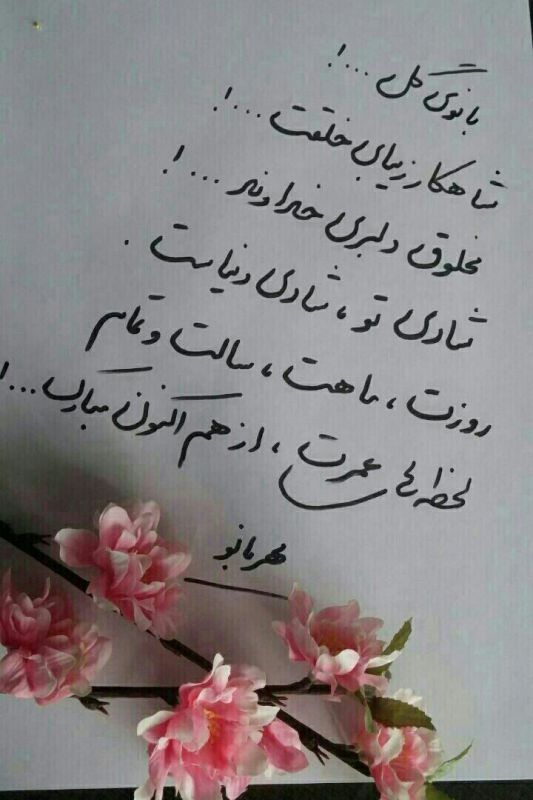 بانوی گل ...!
شاهکار زیبای خلقت ...!
مخلوق دلبری خداوند ...!
شادی تو، شادی دنیاست.
روزت، ماهت، سالت و تمام
لحظه‌های عمرت، از هم اکنون مبارک ...!
مهربانو